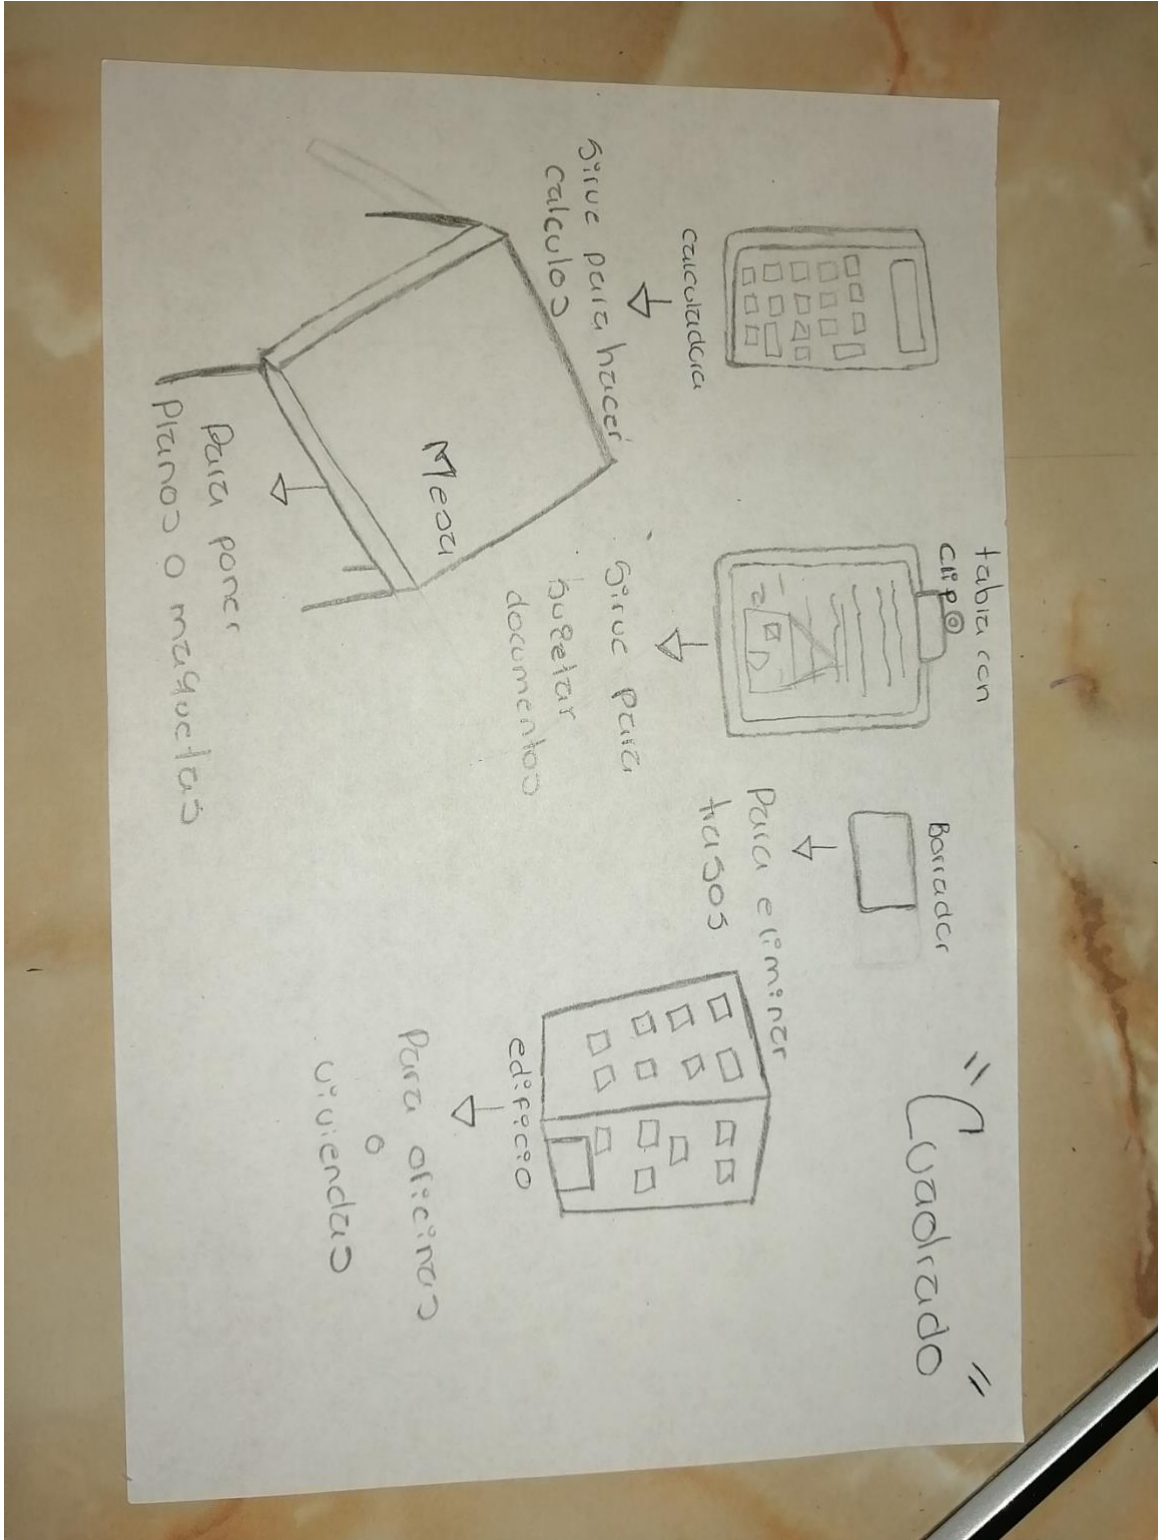 "Cuadrado"
calculadora
Sirve para hacer
calculos
tabla con
clip
Sirve para
sugetar
documentos
Borrador
Para eliminar
trasos
edificio
Para oficinas
o
viviendas
Mesa
Para poner
Planos o maquetas